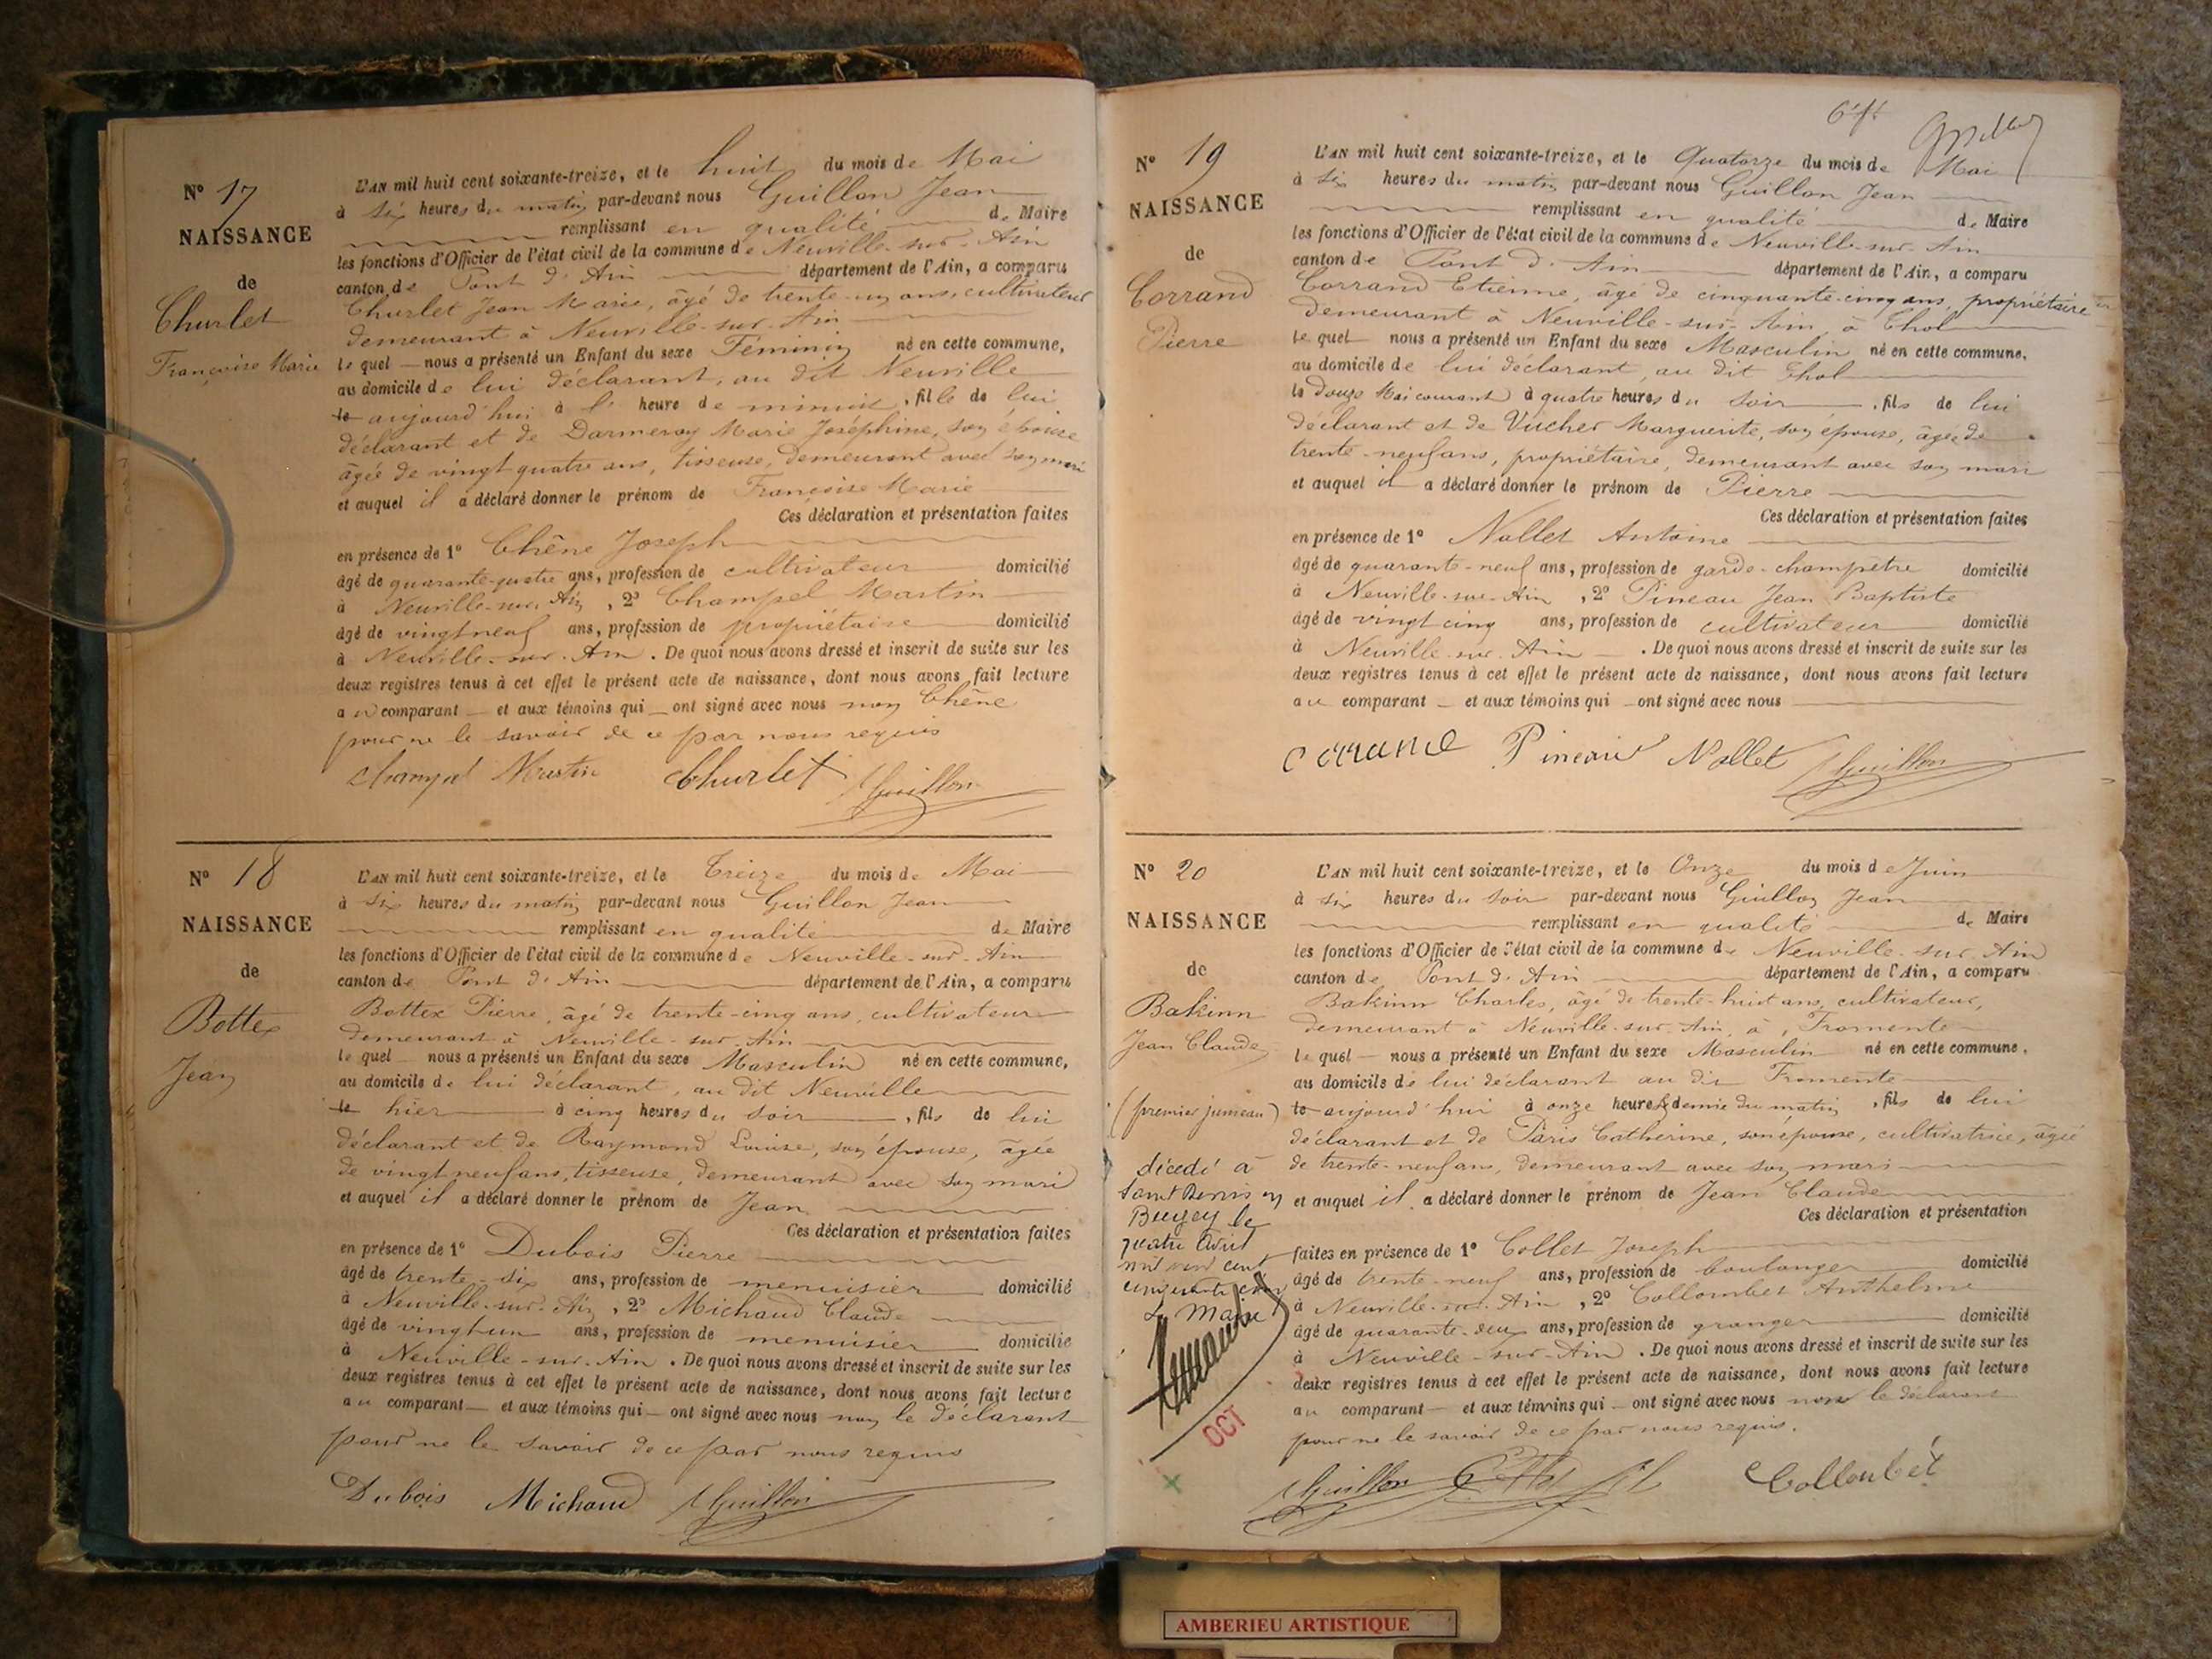 N° 17
NAISSANCE
de
Churlet
Françoise Marie
L'AN mil huit cent soixante-treize, et le huit du mois de Mai
à six heures du matin par-devant nous Guillon Jean
remplissant en qualité de Maire
les fonctions d'Officier de l'état civil de la commune de Neuville-sur-Ain
canton de Pont d'Ain département de l'Ain, a comparu
Churlet Jean Marie, âgé de trente-un ans, cultivateur
demeurant à Neuville-sur-Ain
lequel nous a présenté un Enfant du sexe Féminin né en cette commune,
au domicile de lui déclarant, au dit Neuville
le aujourd'hui à l' heure de minuit, fille de lui
déclarant et de Darmeray Marie Joséphine, son épouse
âgée de vingt quatre ans, tisseuse, demeurant avec son mari
et auquel il a déclaré donner le prénom de Françoise Marie
Ces déclaration et présentation faites
en présence de 1° Chêne Joseph
âgé de quarante-quatre ans, profession de cultivateur domicilié
à Neuville-sur-Ain, 2° Champel Martin
âgé de vingt neuf ans, profession de propriétaire domicilié
à Neuville-sur-Ain. De quoi nous avons dressé et inscrit de suite sur les
deux registres tenus à cet effet le présent acte de naissance, dont nous avons fait lecture
au comparant et aux témoins qui ont signé avec nous non Chêne
pour ne le savoir de ce par nous requis
Champel Martin Churlet Guillon
N° 18
NAISSANCE
de
Bottex
Jean
L'AN mil huit cent soixante-treize, et le Treize du mois de Mai
à six heures du matin par-devant nous Guillon Jean
remplissant en qualité de Maire
les fonctions d'Officier de l'état civil de la commune de Neuville-sur-Ain
canton de Pont d'Ain département de l'Ain, a comparu
Bottex Pierre, âgé de trente-cinq ans, cultivateur
demeurant à Neuville-sur-Ain
lequel nous a présenté un Enfant du sexe Masculin né en cette commune,
au domicile de lui déclarant, au dit Neuville
le hier à cinq heures du soir, fils de lui
déclarant et de Raymond Louise, son épouse, âgée
de vingt neuf ans, tisseuse, demeurant avec son mari
et auquel il a déclaré donner le prénom de Jean
Ces déclaration et présentation faites
en présence de 1° Dubois Pierre
âgé de trente-six ans, profession de menuisier domicilié
à Neuville-sur-Ain, 2° Michaud Claude
âgé de vingt un ans, profession de menuisier domicilié
à Neuville-sur-Ain. De quoi nous avons dressé et inscrit de suite sur les
deux registres tenus à cet effet le présent acte de naissance, dont nous avons fait lecture
au comparant et aux témoins qui ont signé avec nous non le déclarant
pour ne le savoir de ce par nous requis
Dubois Michaud Guillon
N° 19
NAISSANCE
de
Corrand
Pierre
L'AN mil huit cent soixante-treize, et le Quatorze du mois de Mai
à six heures du matin par-devant nous Guillon Jean
remplissant en qualité de Maire
les fonctions d'Officier de l'état civil de la commune de Neuville-sur-Ain
canton de Pont d'Ain département de l'Ain, a comparu
Corrand Etienne, âgé de cinquante-cinq ans, propriétaire
demeurant à Neuville-sur-Ain, à Thol
lequel nous a présenté un Enfant du sexe Masculin né en cette commune,
au domicile de lui déclarant, au dit Thol
le Douze Mai courant à quatre heures du soir, fils de lui
déclarant et de Vucher Marguerite, son épouse, âgée de
trente-neuf ans, propriétaire, demeurant avec son mari
et auquel il a déclaré donner le prénom de Pierre
Ces déclaration et présentation faites
en présence de 1° Nallet Antoine
âgé de quarante-neuf ans, profession de garde-champêtre domicilié
à Neuville-sur-Ain, 2° Pineau Jean Baptiste
âgé de vingt cinq ans, profession de cultivateur domicilié
à Neuville-sur-Ain. De quoi nous avons dressé et inscrit de suite sur les
deux registres tenus à cet effet le présent acte de naissance, dont nous avons fait lecture
au comparant et aux témoins qui ont signé avec nous
Corrand Pineau Nallet Guillon
N° 20
NAISSANCE
de
Bakinn
Jean Claude
(premier jumeau)
décédé à
Saint Denis en
Bugey le
quatre Avril
mil neuf cent
cinquante
Le Maire
OCT
L'AN mil huit cent soixante-treize, et le Onze du mois de Juin
à six heures du soir par-devant nous Guillon Jean
remplissant en qualité de Maire
les fonctions d'Officier de l'état civil de la commune de Neuville-sur-Ain
canton de Pont d'Ain département de l'Ain, a comparu
Bakinn Charles, âgé de trente-huit ans, cultivateur,
demeurant à Neuville-sur-Ain, à Fromente
lequel nous a présenté un Enfant du sexe Masculin né en cette commune,
au domicile de lui déclarant au dit Fromente
le aujourd'hui à onze heures & demie du matin, fils de lui
déclarant et de Paris Catherine, son épouse, cultivatrice, âgée
de trente-neuf ans, demeurant avec son mari
et auquel il a déclaré donner le prénom de Jean Claude
Ces déclaration et présentation
faites en présence de 1° Collet Joseph
âgé de trente-neuf ans, profession de boulanger domicilié
à Neuville-sur-Ain, 2° Collombet Anthelme
âgé de quarante-deux ans, profession de granger domicilié
à Neuville-sur-Ain. De quoi nous avons dressé et inscrit de suite sur les
deux registres tenus à cet effet le présent acte de naissance, dont nous avons fait lecture
au comparant et aux témoins qui ont signé avec nous non le déclarant
pour ne le savoir de ce par nous requis.
Guillon Collombet
AMBERIEU ARTISTIQUE